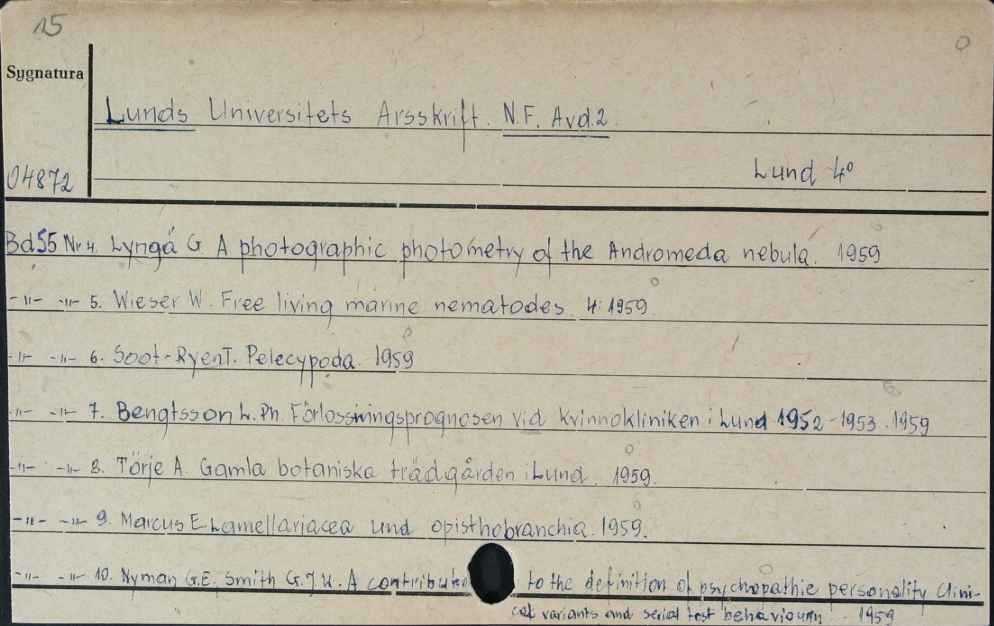 15
Sygnatura
Lunds Universitets Arsskrift. N.F. Avd.2.
04872
Lund 4°
Bd 55 Nr 4. Lyngå G. A photographic photometry of the Andromeda nebula. 1959
-"- -"- 5. Wieser W. Free living marine nematodes. 4. 1959.
-"- -"- 6. Soot-Ryen T. Pelecypoda. 1959
-"- -"- 7. Bengtsson L. Ph. Förlossningsprognosen vid Kvinnokliniken i Lund 1952-1953. 1959
-"- -"- 8. Törje A. Gamla botaniska trädgården i Lund. 1959.
-"- -"- 9. Marcus E. Lamellariacea und opisthobranchia. 1959.
-"- -"- 10. Nyman G.E. Smith G.J.U. A contribute to the definition of psychopathie personality Clini-
cal variants and serial test behaviourn 1959